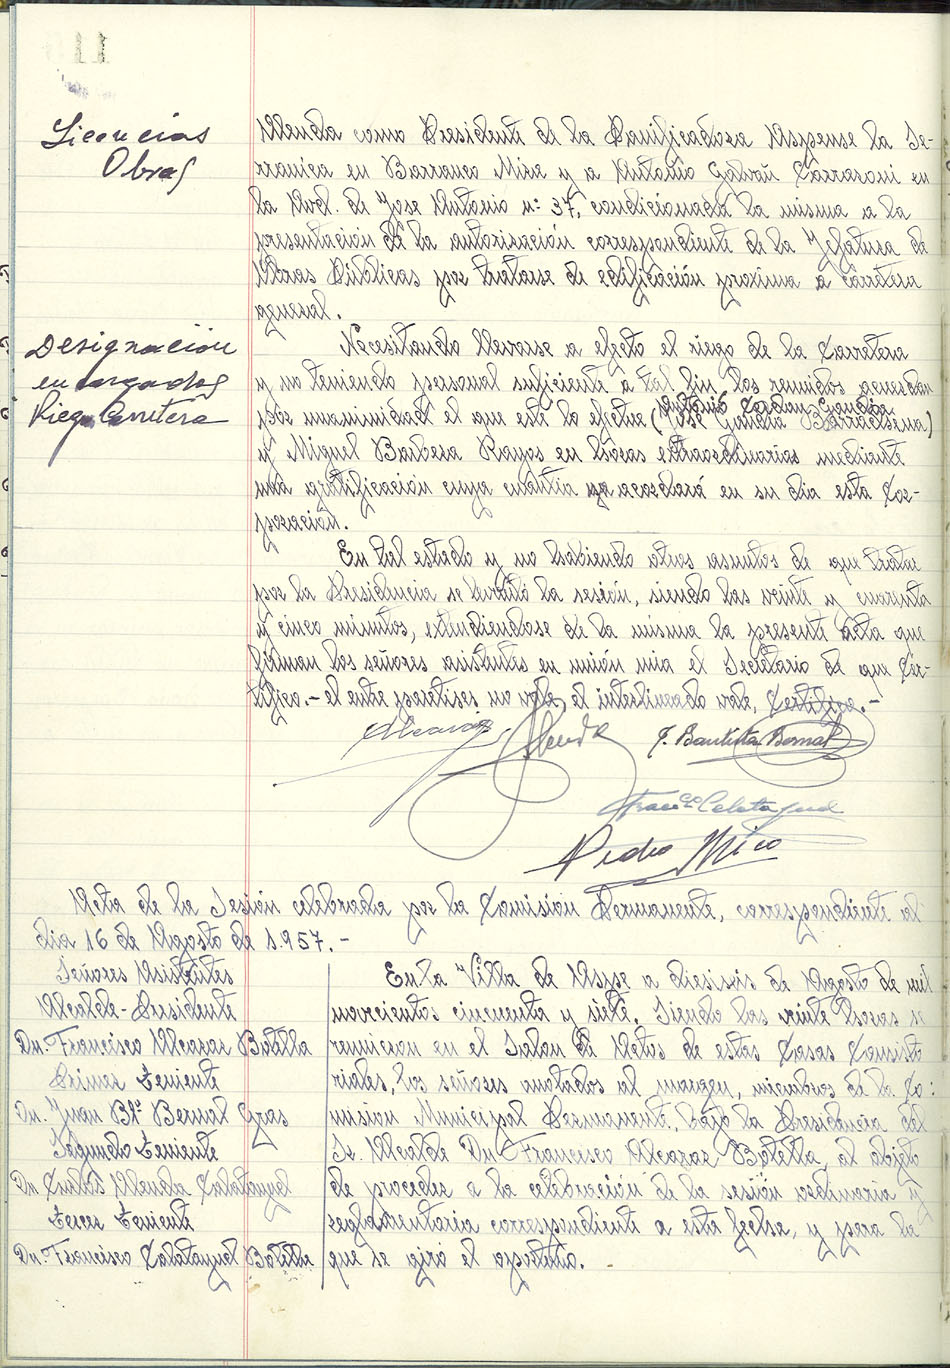 Licencias
Obras
Almda como Presidente de la Panificadora Aspense la Se-
rranica en Barranco Mira y a Antonio Galvañ Carraroni en
la Avd. de Jose Antonio nº 37, condicionada la misma a la
presentación de la autorización correspondiente de la Jefatura de
Obras Públicas por tratarse de edificación proxima a carretera
general.
Designación
encargados
Riego Carretera
Necesitando llevarse a efecto el riego de la Carretera
y no teniendo personal suficiente a tal fin los reunidos acuerdan
por unanimidad el que este lo efectue (Jose Gandia)
Antonio Cerdan Gandia
y Miguel Barbera Ramos en horas extraordinarias mediante
una gratificación cuya cuantia acordará en su dia esta Cor-
poración.
En tal estado y no habiendo otros asuntos de que tratar
por la Presidencia se levantó la sesión, siendo las veinte y cuarenta
y cinco minutos, extendiendose de la misma la presente acta que
firman los señores asistentes en unión mia el Secretario de que Cer-
tifico.- el entre parentises no vale, el interlineado vale, Certifico.-
Alcaraz
Almda
J. Bautista Bernal
Franco Calatayud
Pedro Mico
Acta de la Sesión celebrada por la Comisión Permanente, correspondiente al
dia 16 de Agosto de 1.957.-
Señores Asistentes
Alcalde-Presidente
Dn. Francisco Alcaraz Botella
Primer Teniente
Dn. Juan Btª Bernal Gras
Segundo Teniente
Dn. Carlos Almda Calatayud
Tercer Teniente
Dn. Francisco Calatayud Botella
En la Villa de Aspe a diesiseis de Agosto de mil
novecientos cincuenta y siete. Siendo las veinte horas se
reunieron en el Salon de Actos de estas Casas Consisto
riales, los señores anotados al margen, miembros de la Co:
mision Municipal Permanente, bajo la Presidencia del
Sr. Alcalde Dn. Francisco Alcaraz Botella, al objeto
de proceder a la celebración de la sesión ordinaria y
reglamentaria correspondiente a esta fecha, y para la
que se giró el oportuno.